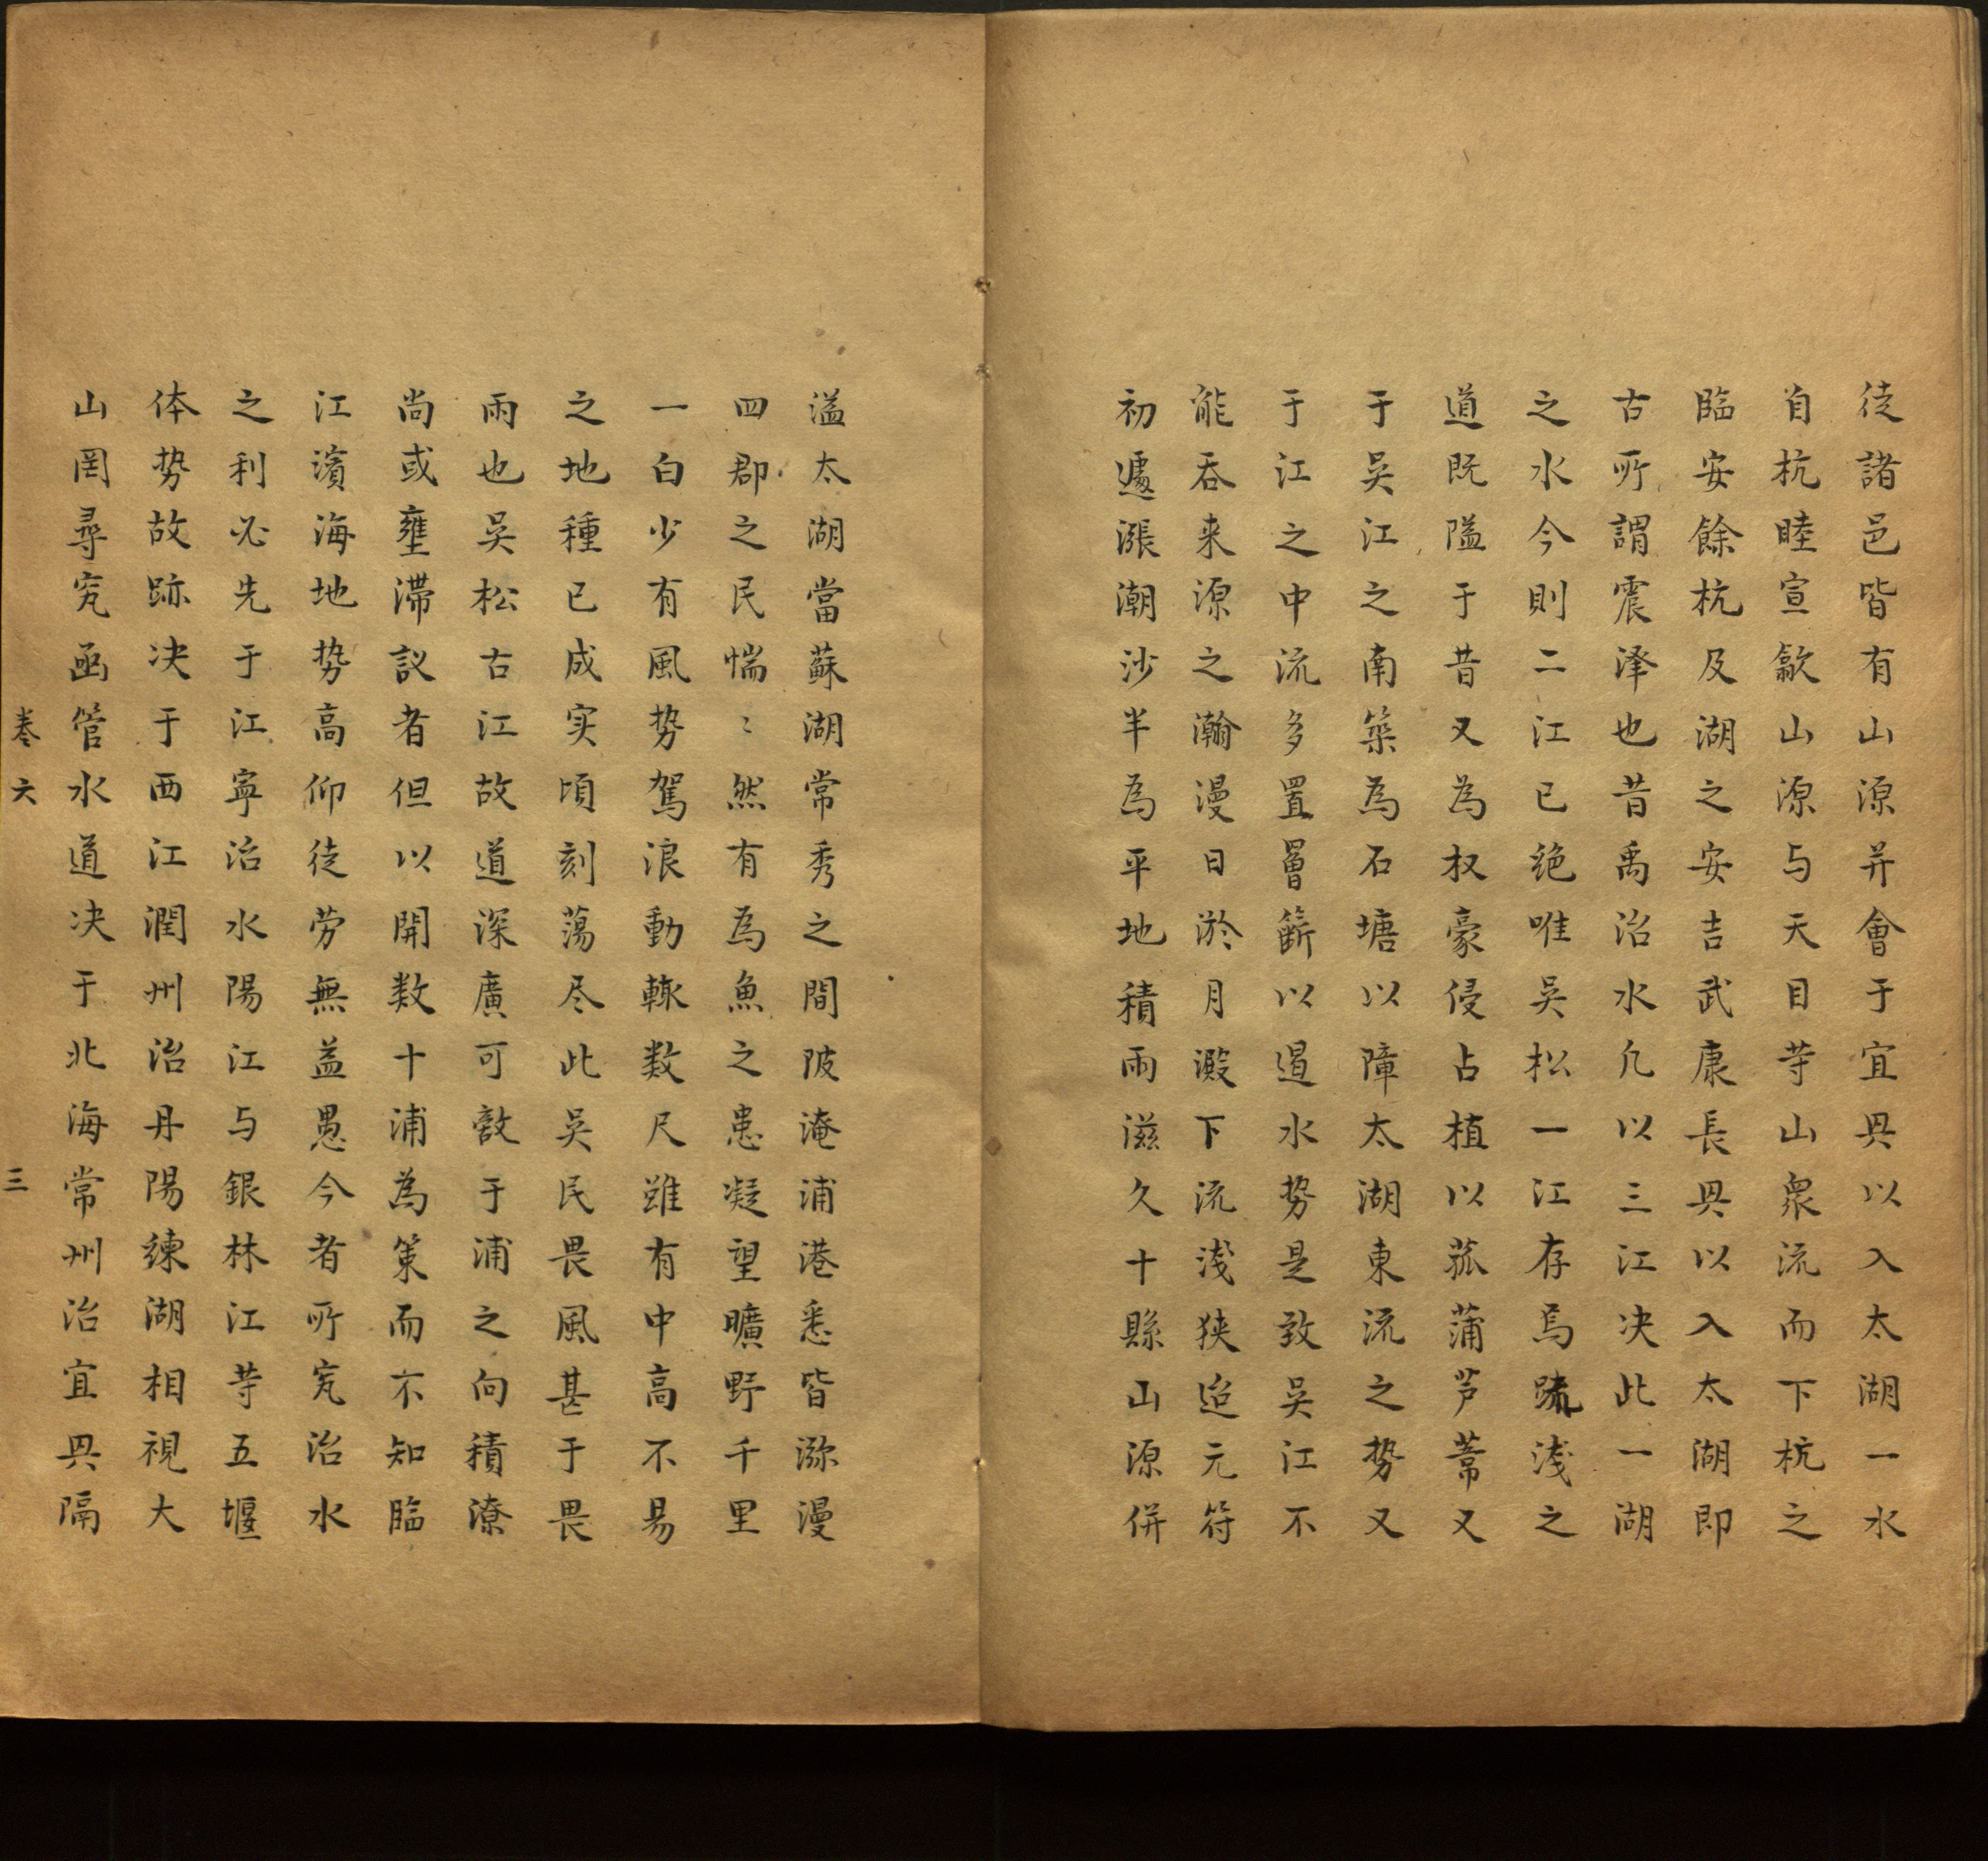 徒諸邑皆有山源并會于宜興以入太湖一水
自杭睦宣歙山源与天目䓁山衆流而下杭之
臨安餘杭及湖之安吉武康長興以入太湖即
古所謂震泽也昔禹治水凢以三江决此一湖
之水今則二江已绝唯吳松一江存焉踈浅之
道既隘于昔又為权豪侵占植以菰蒲芦葦又
于吳江之南築為石塘以障太湖東流之势又
于江之中流多置罾籪以遏水势是致吳江不
能吞来源之瀚漫日淤月澱下流浅狭迨元符
初遽漲潮沙半為平地積雨滋久十縣山源併
溢太湖當蘇湖常秀之間陂淹浦港悉皆瀰漫
四郡之民惴〻然有為魚之患凝望曠野千里
一白少有風势駕浪動輙数尺雖有中高不易
之地種已成实頃刻蕩尽此吳民畏風甚于畏
雨也吳松古江故道深廣可敵于浦之向積潦
尚或壅滞議者但以開数十浦為策而不知臨
江濱海地势高仰徒劳無益愚今者所究治水
之利必先于江寧治水陽江与銀林江䓁五堰
体势故跡决于西江潤州治丹陽練湖相視大
山罔尋究函管水道决于北海常州治宜興隔
卷六
三